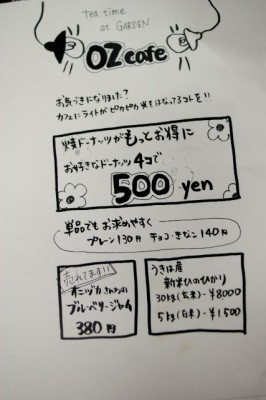 tea time
at GARDEN
OZ cafe
お気づきになりました？
カフェにライトがピカピカ光をはなってるコトを!!
焼ドーナッツがもっとお得に
お好きなドーナッツ4コで
500 yen
単品でもお求めやすく
プレーン130円 チョコ・きなこ140円
売れてます!!
オニヅカさんちの
ブルーベリージャム
380円
うきは産
新米ひのひかり
30kg(玄米)-¥8000
5kg(白米)-¥1500